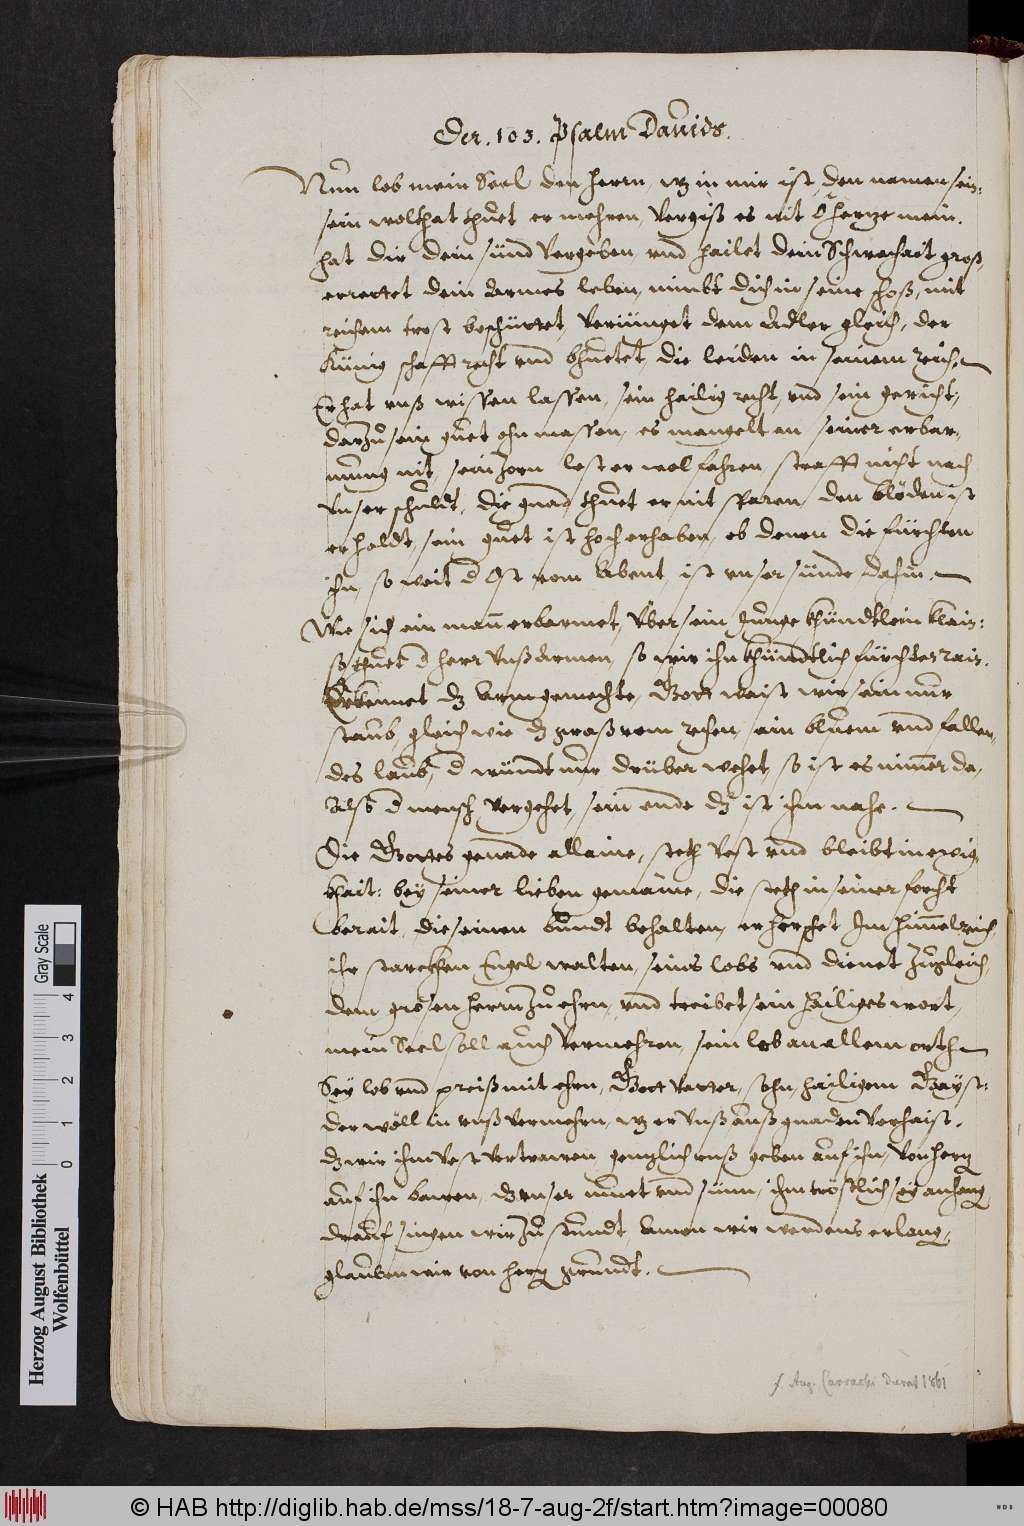 Der .103. Psalm Dauids.
Nun lob mein Seel den herrn, wz in mir ist, den namen sein:
sein wolthat thuet er mehren, Vergiß es nit O hertze mein.
hat dir dein sünd Vergeben, vnd hailet dein Schwachait groß,
errettet dein Armes leben, nimbt dich in seine schoß, mit
reichem trost beschüttet, Veriünget dem Adler gleich, der
Künig schafft recht vnd bhüetet, die leiden in seinem reich.
Er hat vnß wissen lassen, sein hailig recht, vnd sein gericht,
darzu sein guet ohn massen, es mangelt an seiner erbar-
mung nit, sein Zorn lest er wol fahren, strafft nicht nach
Vnser schuldt, die gnad thuet er nit sparen, den blöden ist
er holdt, sein guet ist hoch erhaben, ob denen die fürchten
ihn, so weit d Ost vom Abent, ist vnser sünde dahin.
Wie sich ein man erbarmet, Über sein Junge khündtlein klain:
so thuet d herr Vnß Armen, so wir ihn khündtlich fürchten rain.
Er kennet dz Arm gemechte, Gott waist wir sein nur
staub, gleich wie dz graß vom rechen, ein bluem vnd fallen-
des laub, d wündt nur drüber wehet, so ist es nimer da,
Also d mensch Vergehet, sein ende dz ist ihm nahe.
Die Gottes genade allaine, steth Vest vnd bleibt in ewig
khait: bey seiner lieben gemaine, die steth in seiner forcht
berait, die seinen bundt behalten, er herschet Im himelreich,
ihr starckhen Engel walten, seins lobs vnd dienet zugleich,
dem grosen herrn zu ehrn, vnd treibet sein hailiges wort,
mein Seel soll auch Vermehren, sein lob an allem orth
Sey lob vnd preiß mit ehrn, Gott Vatter, sohn, hailigem Gayst:
der wöll in vnß vermehrn, wz er Vnß auß gnaden Verhaist.
dz wir ihm Vest Vertrawen, gentzlich vnß geben auf ihn, Von hertz
auf ihn bawen, dz vnser muet vnd sünn, ihm tröstlich sey anhang
drauf singen wir zu stundt, Amen wir werdens erlang,
glauben wir von hertz grundt.
f. Aug. Carrachi
Herzog August Bibliothek
Wolfenbüttel
0 1 2 3 4
Gray Scale
© HAB http://diglib.hab.de/mss/18-7-aug-2f/start.htm?image=00080